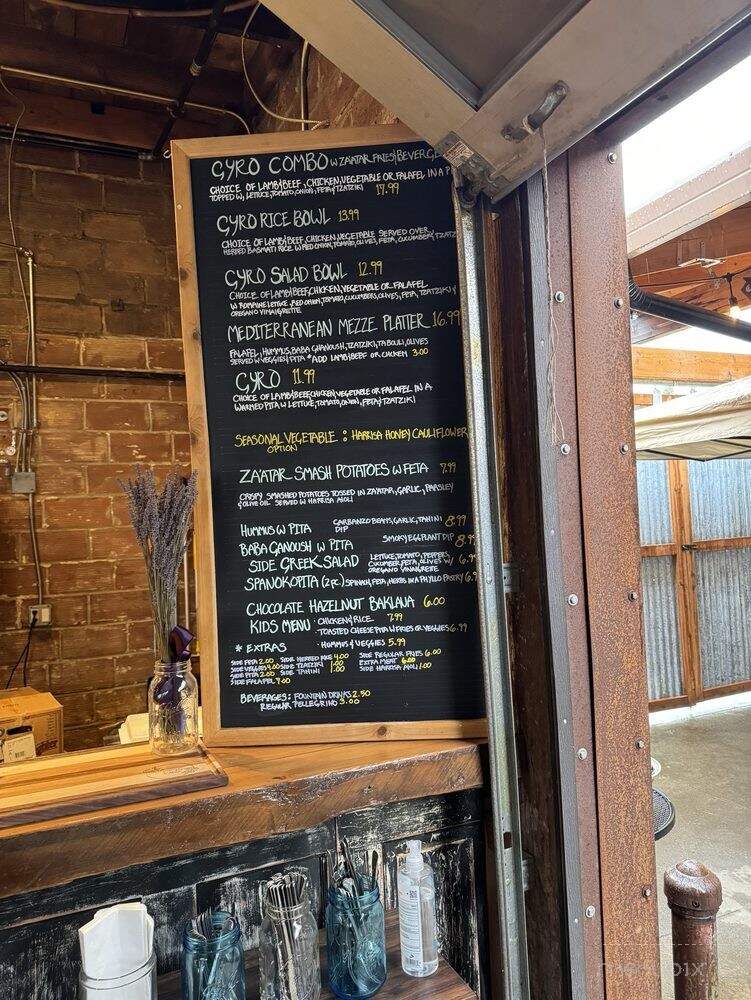 GYRO COMBO W ZA'ATAR FRIES & BEVERGE
CHOICE OF LAMB/BEEF, CHICKEN, VEGETABLE OR FALAFEL IN A P
TOPPED W, LETTUCE, TOMATO, ONION, FETA & TZATZIKI 17.99
GYRO RICE BOWL 13.99
CHOICE OF LAMB/BEEF, CHICKEN, VEGETABLE SERVED OVER
HERBED BASMATI RICE W RED ONION, TOMATO, OLIVES, FETA, CUCUMBER & TZATZ
GYRO SALAD BOWL 12.99
CHOICE OF LAMB/BEEF, CHICKEN, VEGETABLE OR FALAFEL
W ROMAINE LETTUCE, RED ONION, TOMATO, CUCUMBERS, OLIVES, FETA, TZATZIKI &
OREGANO VINAIGRETTE
MEDITERRANEAN MEZZE PLATTER 16.99
FALAFEL, HUMMUS, BABA GHANOUSH, TZATZIKI, TABOULI, OLIVES
SERVED W VEGGIES & PITA *ADD LAMB/BEEF OR CHICKEN 3.00
GYRO 11.99
CHOICE OF LAMB/BEEF, CHICKEN, VEGETABLE OR FALAFEL IN A
WARMED PITA W LETTUCE, TOMATO, ONION, FETA & TZATZIKI
SEASONAL VEGETABLE : HARRISA HONEY CAULIFLOWER
OPTION
ZA'ATAR SMASH POTATOES W FETA 7.99
CRISPY SMASHED POTATOES TOSSED IN ZA'ATAR, GARLIC, PARSLEY
& OLIVE OIL SERVED W HARISSA AIOLI
HUMMUS W PITA GARBANZO BEANS, GARLIC, TAHINI DIP 8.99
BABA GANOUSH W PITA SMOKY EGGPLANT DIP 8.9
SIDE GREEK SALAD LETTUCE, TOMATO, PEPPERS, CUCUMBER, FETA, OLIVES W/ OREGANO VINAIGRETTE 6.9
SPANOKOPITA (2 PC.) SPINACH, FETA, HERBS IN A PHYLLO PASTRY 6.9
CHOCOLATE HAZELNUT BAKLAVA 6.00
KIDS MENU · CHICKEN & RICE 7.99
· TOASTED CHEESE PITA W FRIES OR VEGGIES 6.99
· HUMMUS & VEGGIES 5.99
* EXTRAS
SIDE FETA 2.00 SIDE HERBED RICE 4.00 SIDE REGULAR FRIES 6.00
SIDE VEGGIES 4.00 SIDE TZATZIKI 1.00 EXTRA MEAT 6.00
SIDE PITA 2.00 SIDE TAHINI 1.00 SIDE HARISSA AIOLI 1.00
SIDE FALAFEL 7.00
BEVERAGES: FOUNTAIN DRINKS 2.50
REGULAR PELLEGRINO 3.00